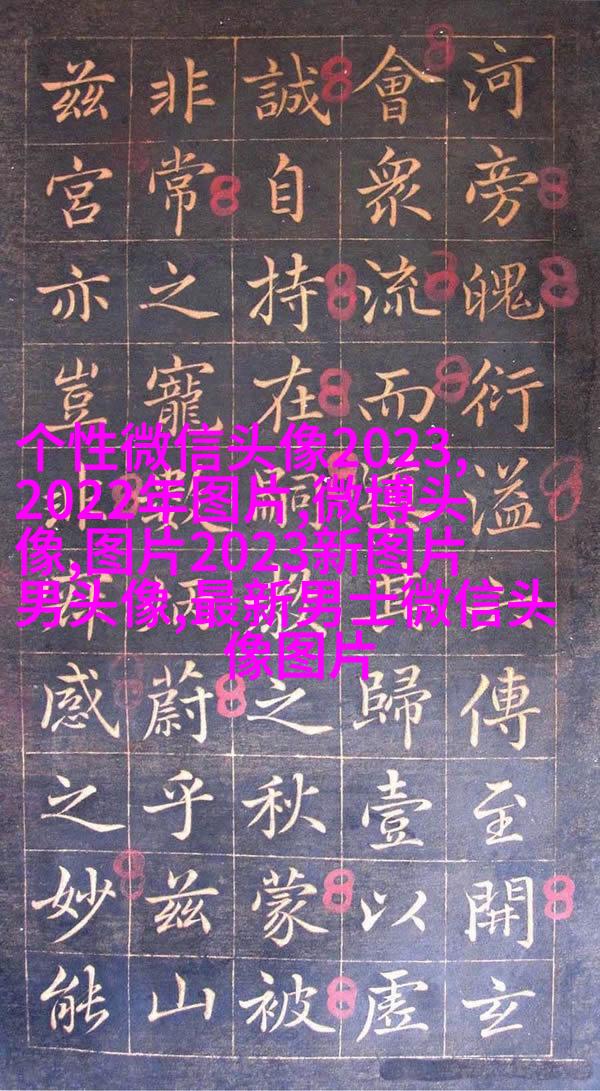 河旁魄衍溢傳至開玄
會衆流而歸壹以虛
誠自持在之秋蒙被
非常之寵蔚乎茲山
茲宮亦豈感之妙能
个性微信头像2023,
2022年图片,微博头
像,图片2023新图片
男头像,最新男士微信头
像图片